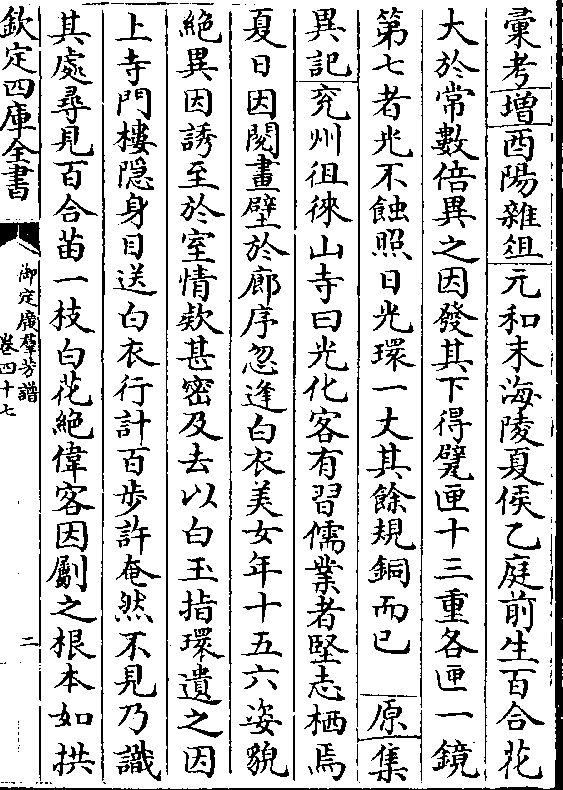 彚考增酉陽雜俎元和末海陵夏侯乙庭前生百合花
大於常數倍異之因發其下得甓匣十三重各匣一鏡
第七者光不蝕照日光環一丈其餘規銅而已原集
異記兖州徂徠山寺曰光化客有習儒業者堅志栖焉
夏日因閱畫壁於廊序忽逢白衣美女年十五六姿貌
絶異因誘至於室情欵甚密及去以白玉指環遺之因
上寺門樓隠身目送白衣行計百步許奄然不見乃識
其處尋見百合苗一枝白花絶偉客因劚之根本如拱
欽定四庫全書
御定廣羣芳譜
卷四十七
二